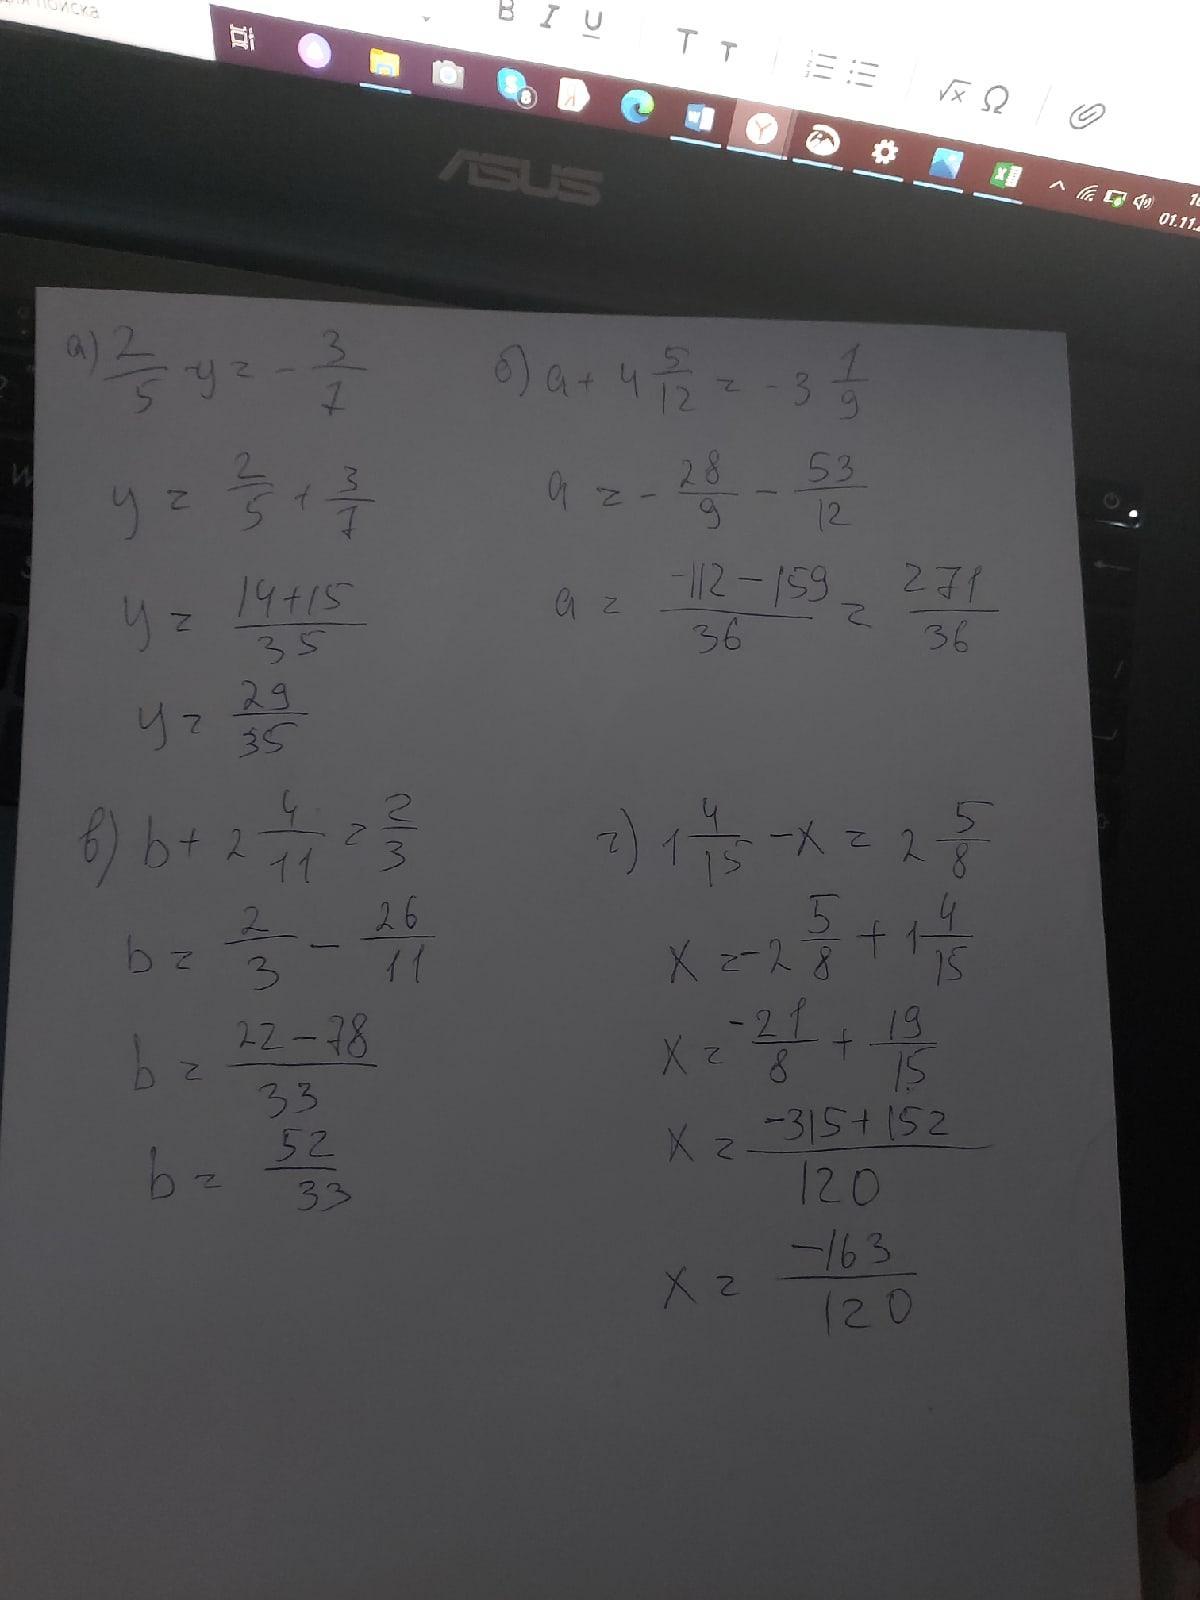 для поиска
B I U T T √x Ω
S 8 Я W Y X
01.11.
ASUS
а) 2/5 - y = - 3/7
y = 2/5 + 3/7
y = 14+15/35
y = 29/35
б) a + 4 5/12 = -3 1/9
a = - 28/9 - 53/12
a = -112-159/36 = 271/36
в) b + 2 4/11 = 2/3
b = 2/3 - 26/11
b = 22-78/33
b = 52/33
г) 1 4/15 - x = 2 5/8
x = -2 5/8 + 1 4/15
x = -21/8 + 19/15
x = -315+152/120
x = -163/120